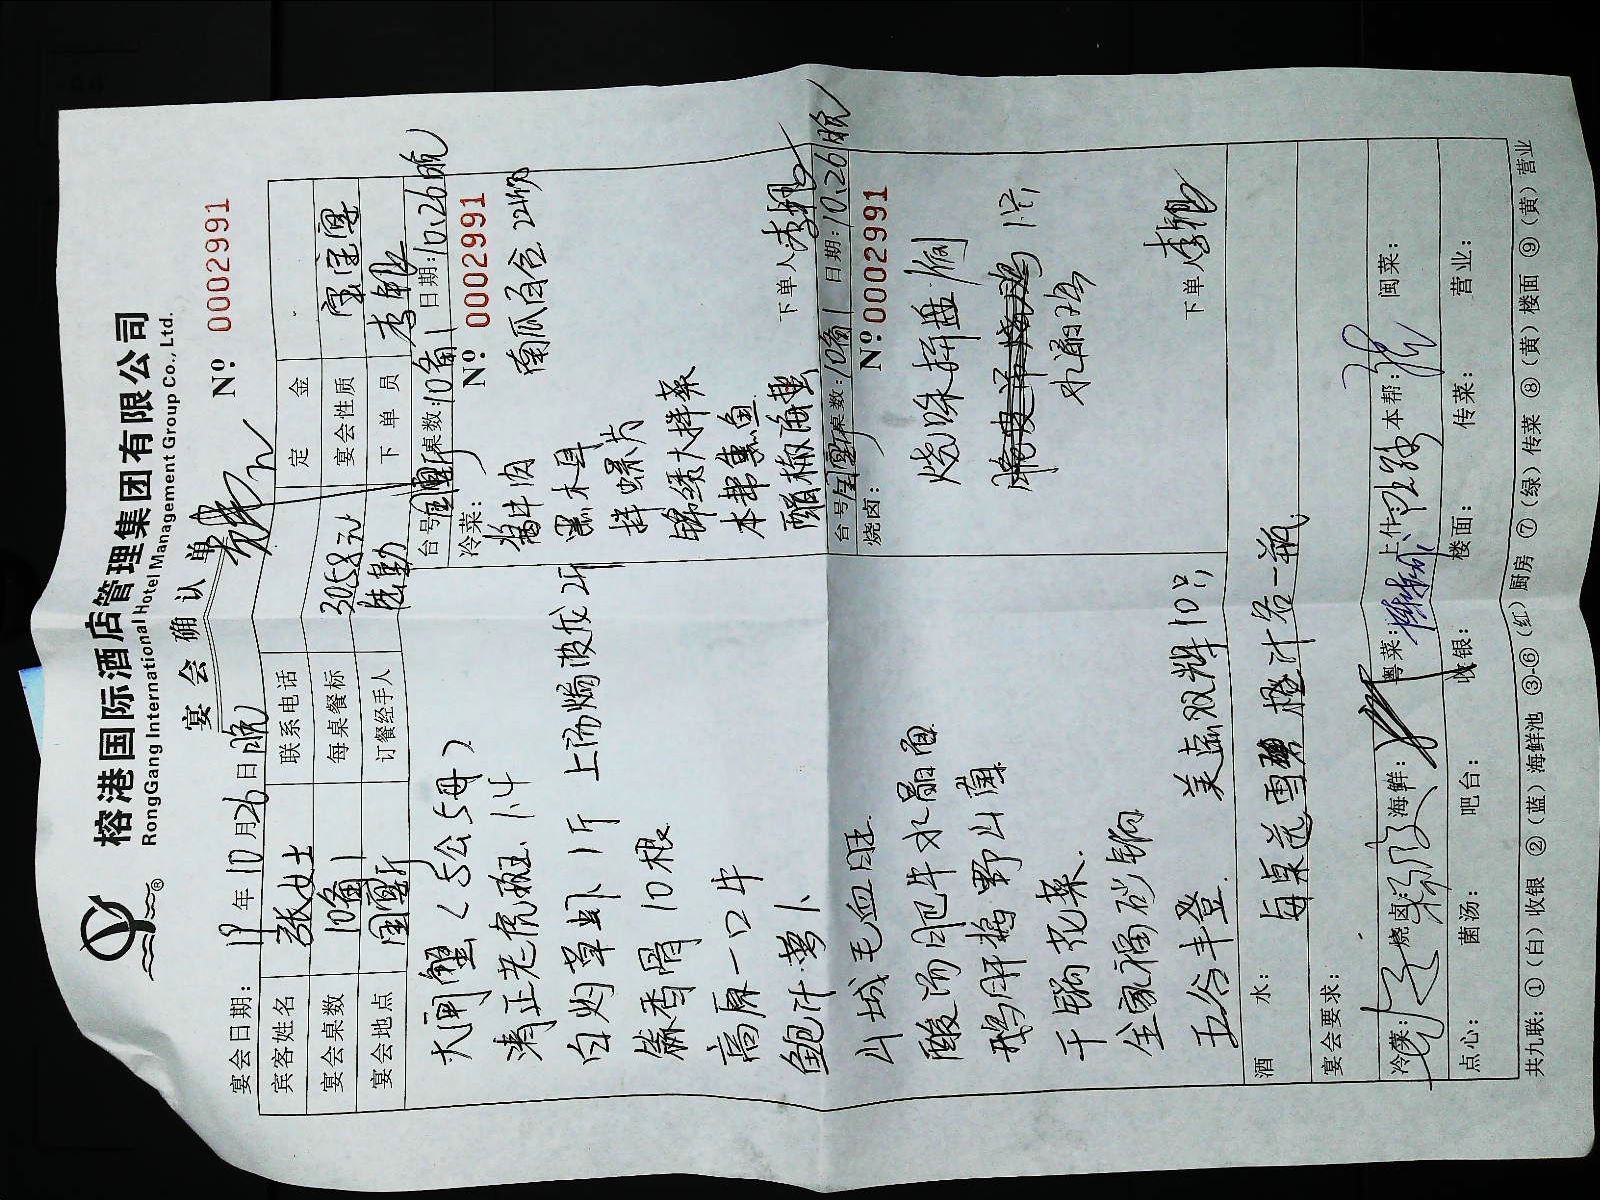 榕港国际酒店管理集团有限公司
RongGang International Hotel Management Group Co., Ltd.
®
宴会确认单
Nº 0002991
宴会日期: 19年10月26日晚
宾客姓名 张女士 联系电话 定金
宴会桌数 10备1 每桌餐标 3058元 宴会性质
宴会地点 国宴厅 订餐经手人 下单员
大闸蟹(5公5母)
清正老虎斑 1斤
白灼草虾1斤 上汤焗波龙2斤
蒜香骨10根
高原一口牛
鲍汁萝卜
山城毛血旺
酸汤肥牛水晶面
鹅肝酱野山菌
干锅花菜
全家福砂锅
五谷丰登 美点双辉10只
台号 国宴厅 桌数: 10备1 日期: 10.26晚
冷菜: Nº 0002991
酱牛肉 南瓜百合
黑木耳
拌螺片
锦绣大拌菜
本帮熏鱼
醋椒海蜇
下单人
台号 国宴厅 桌数: 10备1 日期: 10.26晚
烧卤: Nº 0002991
烧味拼盘 1例
1只
下单人
酒水: 每桌送雪碧橙汁各一瓶
宴会要求:
冷菜: 烧卤 海鲜: 粤菜: 上什 本帮: 闽菜:
点心: 菌汤: 吧台: 收银: 楼面: 传菜: 营业:
共九联: ①(白)收银 ②(蓝)海鲜池 ③-⑥(红)厨房 ⑦(绿)传菜 ⑧(黄)楼面 ⑨(黄)营业